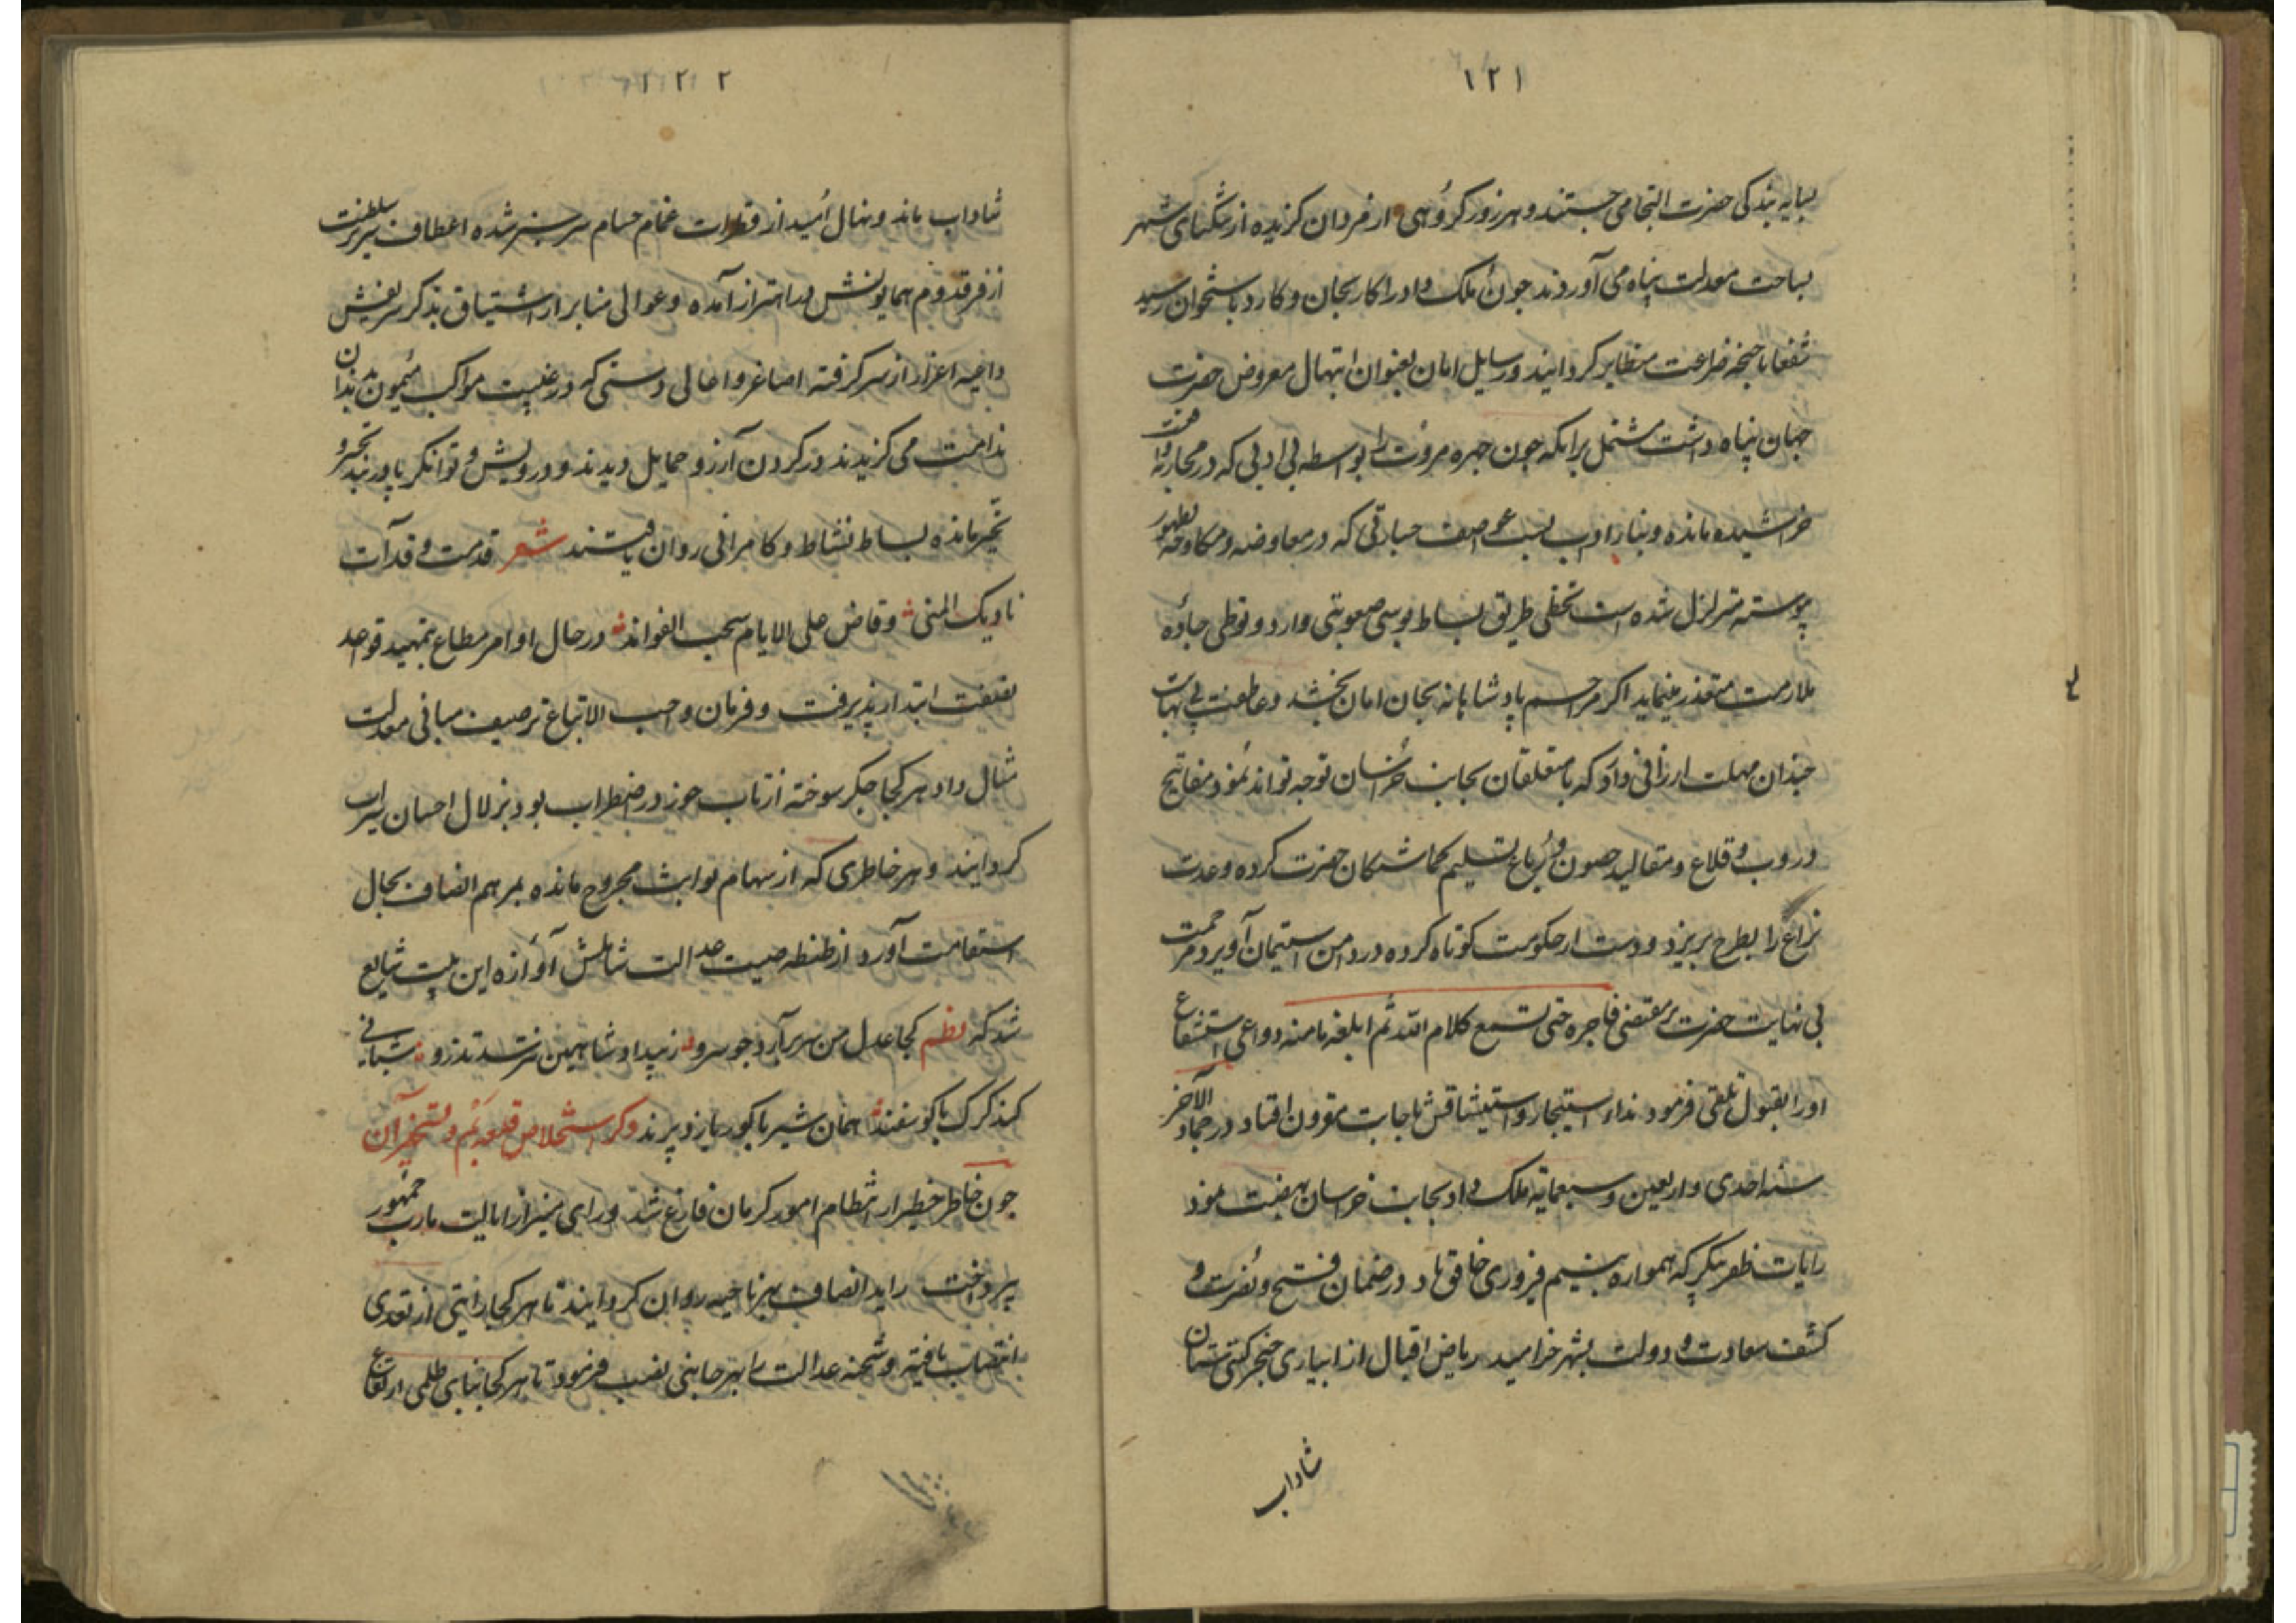 ۱۲۱
بسایه بندکی حضرت التجا می جستند و هر روز کروهی از فردان کزیده از تنکنای شهر
بساحت معدلت پناه می آوردند جون ملک داود را کار بجان و کارد باستخوان رسید
شفعا با جنحه ضراعت متطایر کردانید و رسایل امان بعنوان ابتهال معروض حضرت
جهان پناه داشت مشتمل برانکه جون جهره مروت را بواسطه بی ادبی که در محاربه
خراشیده مانده و بناء ادب بسبب عواصف جسارتی که در معاوضه و مکاوحه بظهور
پیوسته متزلزل شده است تخطی طریق بساط بوسی صعوبتی دارد و توطی جاده
ملازمت متعذر مینماید اکر مراحم پادشاهانه بجان امان بخشد و عاطفت بی نهایت
جندان مهلت ارزانی دارد که با متعلقان بجانب خراسان توجه تواند نمود مفاتیح
دروب و قلاع و مقالید حصون و رباع تسلیم کماشتکان حضرت کرده وعدت
نزاع را بطرح بریزد و دست از حکومت کوتاه کرده در دامن استیمان آویزد مرحمت
بی نهایت حضرت بر مقتضی فاجره حتی تسمع کلام الله ثم ابلغه مامنه دواعی استشفاع
اورا بقبول تلقی فرمود نداء استیجار و استیشاقش باجابت مقرون افتاد در جماد الآخر
سنه احدی و اربعین و سبعمایة ملک داود بجانب خراسان نهضت نمود
رایات ظفر پیکر که همواره بنسیم فیروزی خافق باد در ضمان فتح و نصرت و
کنف سعادت و دولت بشهر خرامید ریاض اقبال از ابیاری خنجر کیتی ستان
شاداب
۱۲۲
شاداب ماند و نهال امید از قطرات غمام حسام سر سبز شده اعطاف سریر سلطنت
از فر قدوم همایونش به اهتزاز آمده و عوالی منابر از اشتیاق بذکر شریفش
داعیه اعزاز از سر کرفته اصاغر و اعالی دستی که در غیبت مواکب میمون بدندان
ندامت می کزیدند در کردن آرزو حمایل دیدند و درویش و توانکر پا در بند تحیر و
تحیر مانده بساط نشاط و کامرانی روان یافتند شعر قدمت و قد آت
نادیک المنی و فاض علی الایام سحب الفواید در حال اوامر مطاع بتمهید قواعد
نصفت ابتدا پذیرفت و فرمان واجب الاتباع ترصیف مبانی معدلت
مثال داد هر کجا جکر سوخته از تاب جور در اضطراب بود بزلال احسان سیراب
کردانید و هر خاطری که از سهام نوایب مجروح مانده بمرهم انصاف بحال
استقامت آورد از طنطنه صیت عدالت شاملش آوازه این بیت شایع
شد که نظم کجا عدل من سر برآرد جو سرو ز بیداد شاهین نترسد تذرو شبانی
کند کرک با کوسفند همان شیر با کور یازد پرند ذکر استخلاص قلعه بم و تسخیر آن
جون خاطر خطیر از انتظام امور کرمان فارغ شد و رای منیر از ایالت مارب جمهور
پرداخت راید انصاف بهر ناحیه روان کردانید تا هر کجا رایتی از تعدی
انتصاب یافته و شحنه عدالت را بهر جانبی نصب فرمود تا هر کجا بنای ظلمی ارتفاع